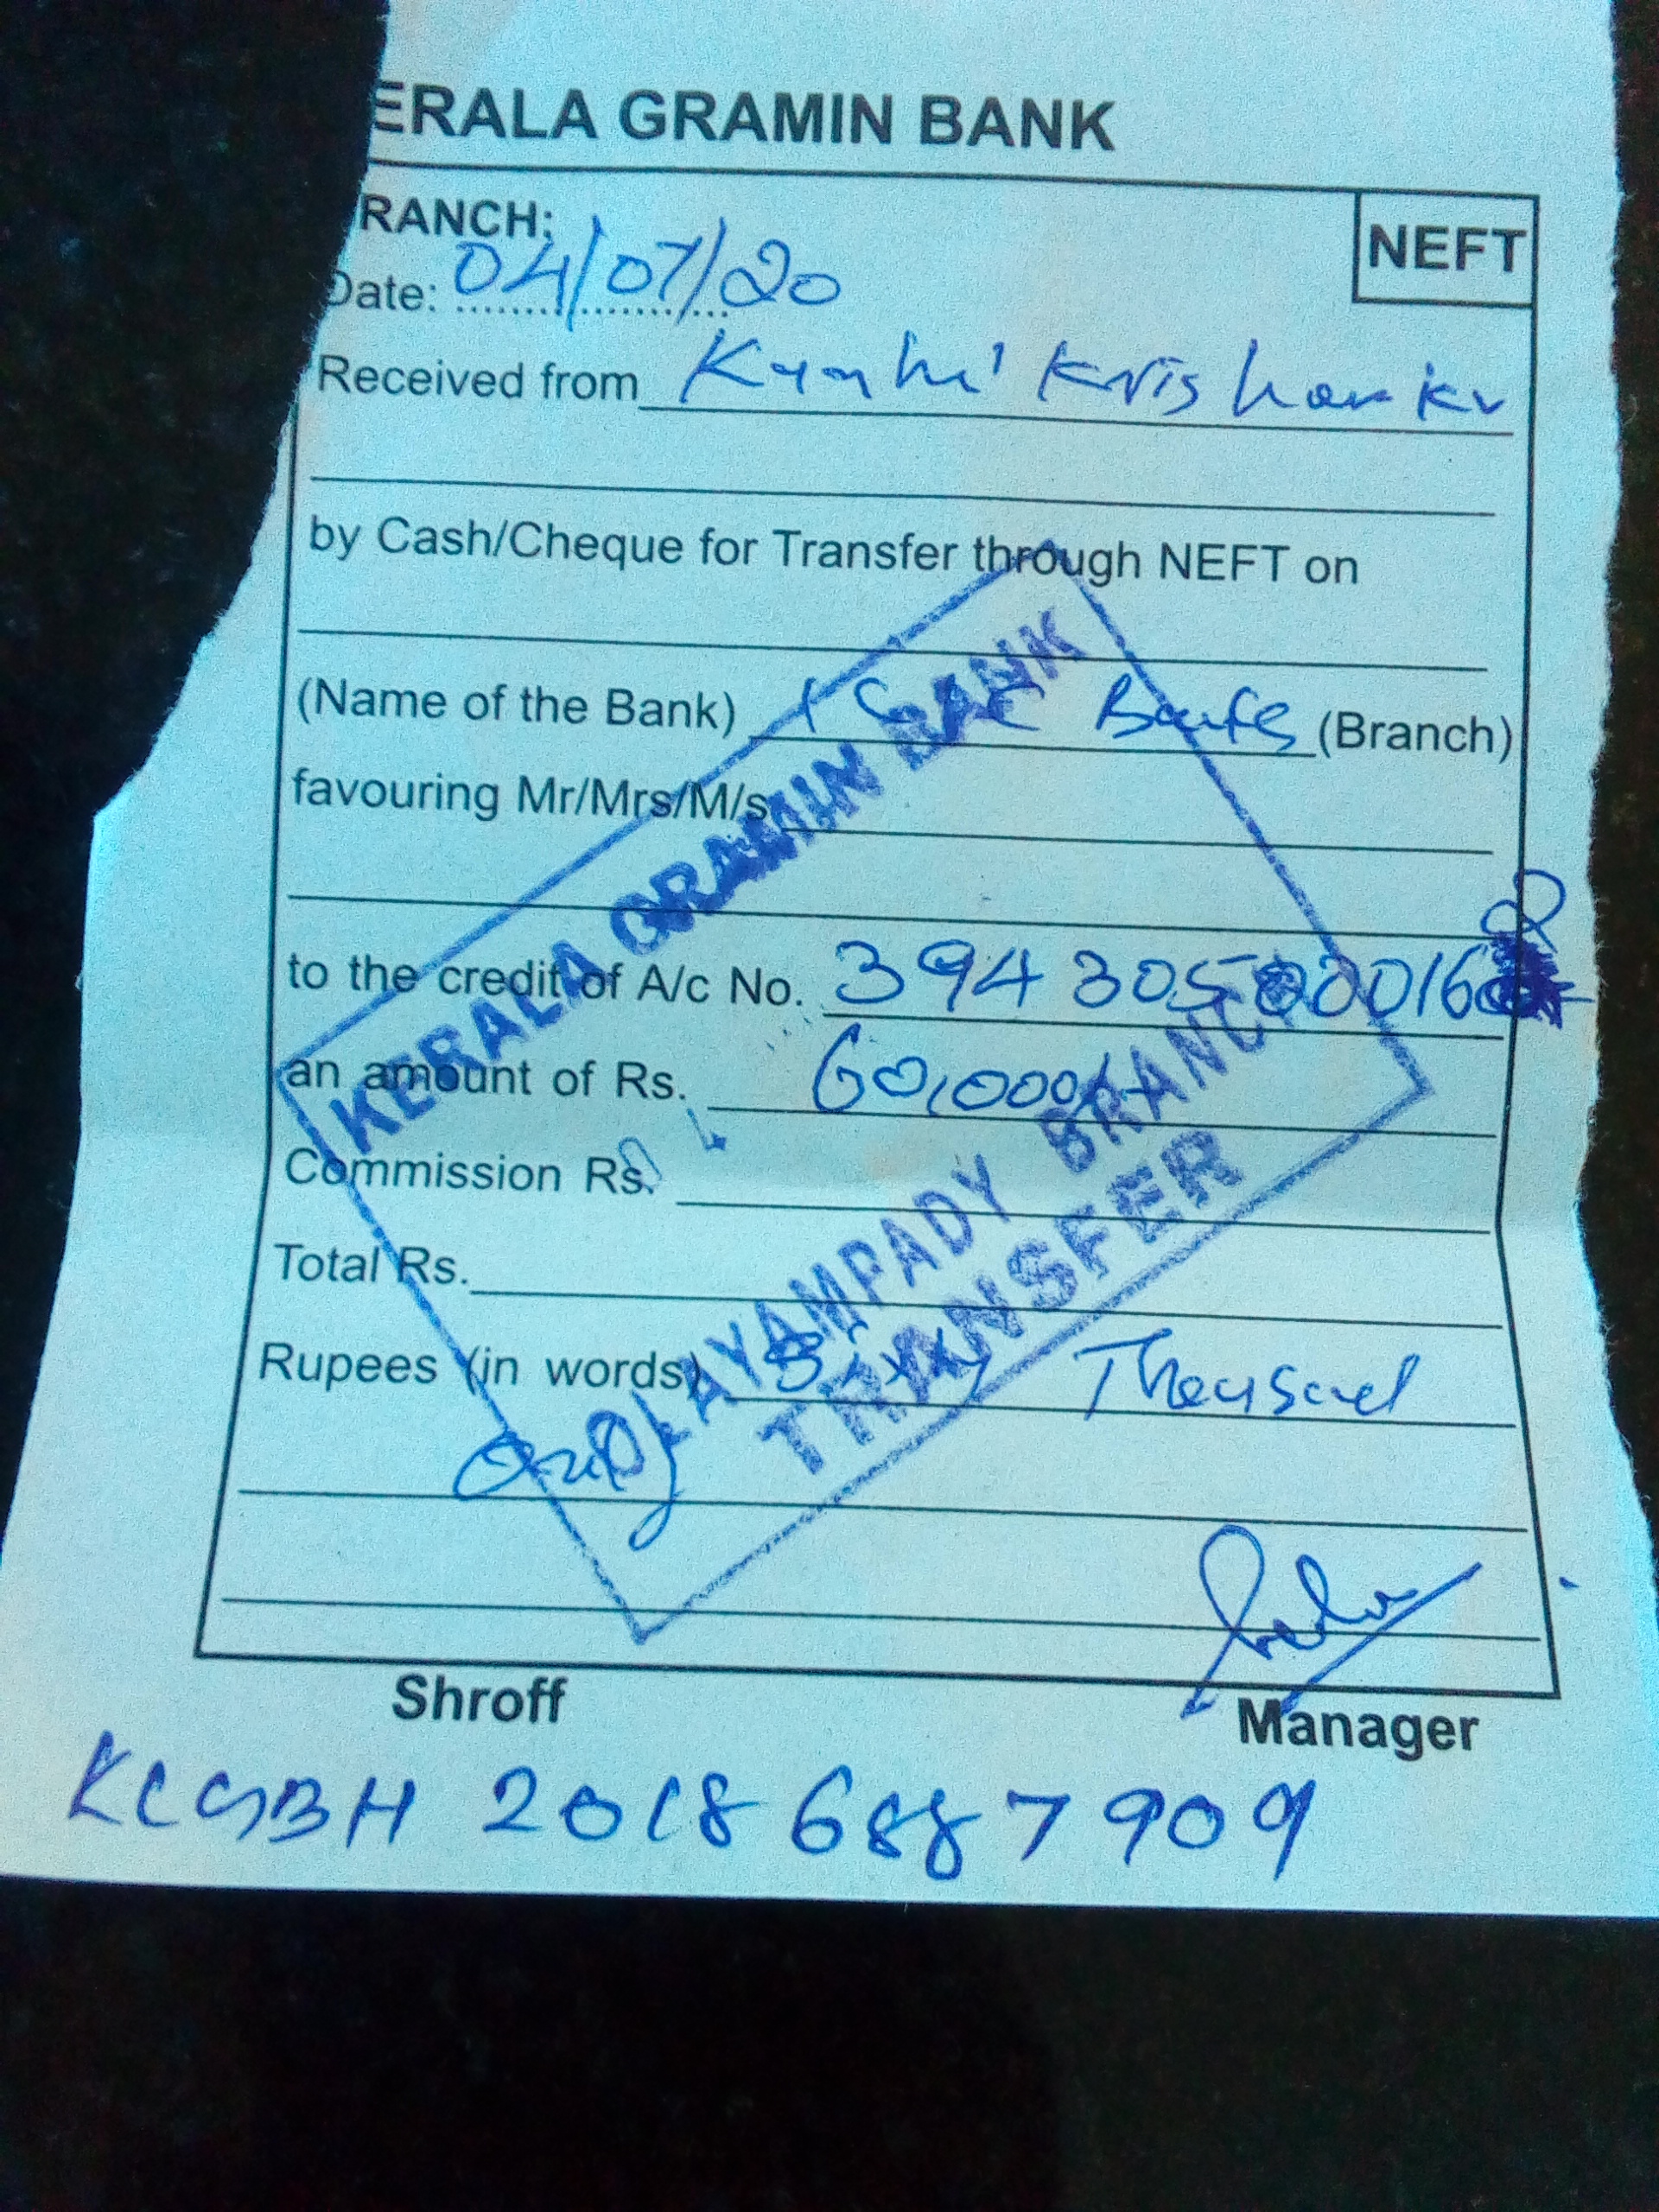 ERALA GRAMIN BANK
RANCH:
NEFT
Date: 04/07/20
Received from Kunhi Krishnan Kv
by Cash/Cheque for Transfer through NEFT on
(Name of the Bank) Bank (Branch)
favouring Mr/Mrs/M/s
to the credit of A/c No. 394305000016
an amount of Rs. 60,000/-
Commission Rs.
Total Rs.
Rupees (in words) Sixty Thousand
only
KERALA GRAMIN BANK
BRANCH
TRANSFER
Shroff
Manager
KLGBH 20186887909